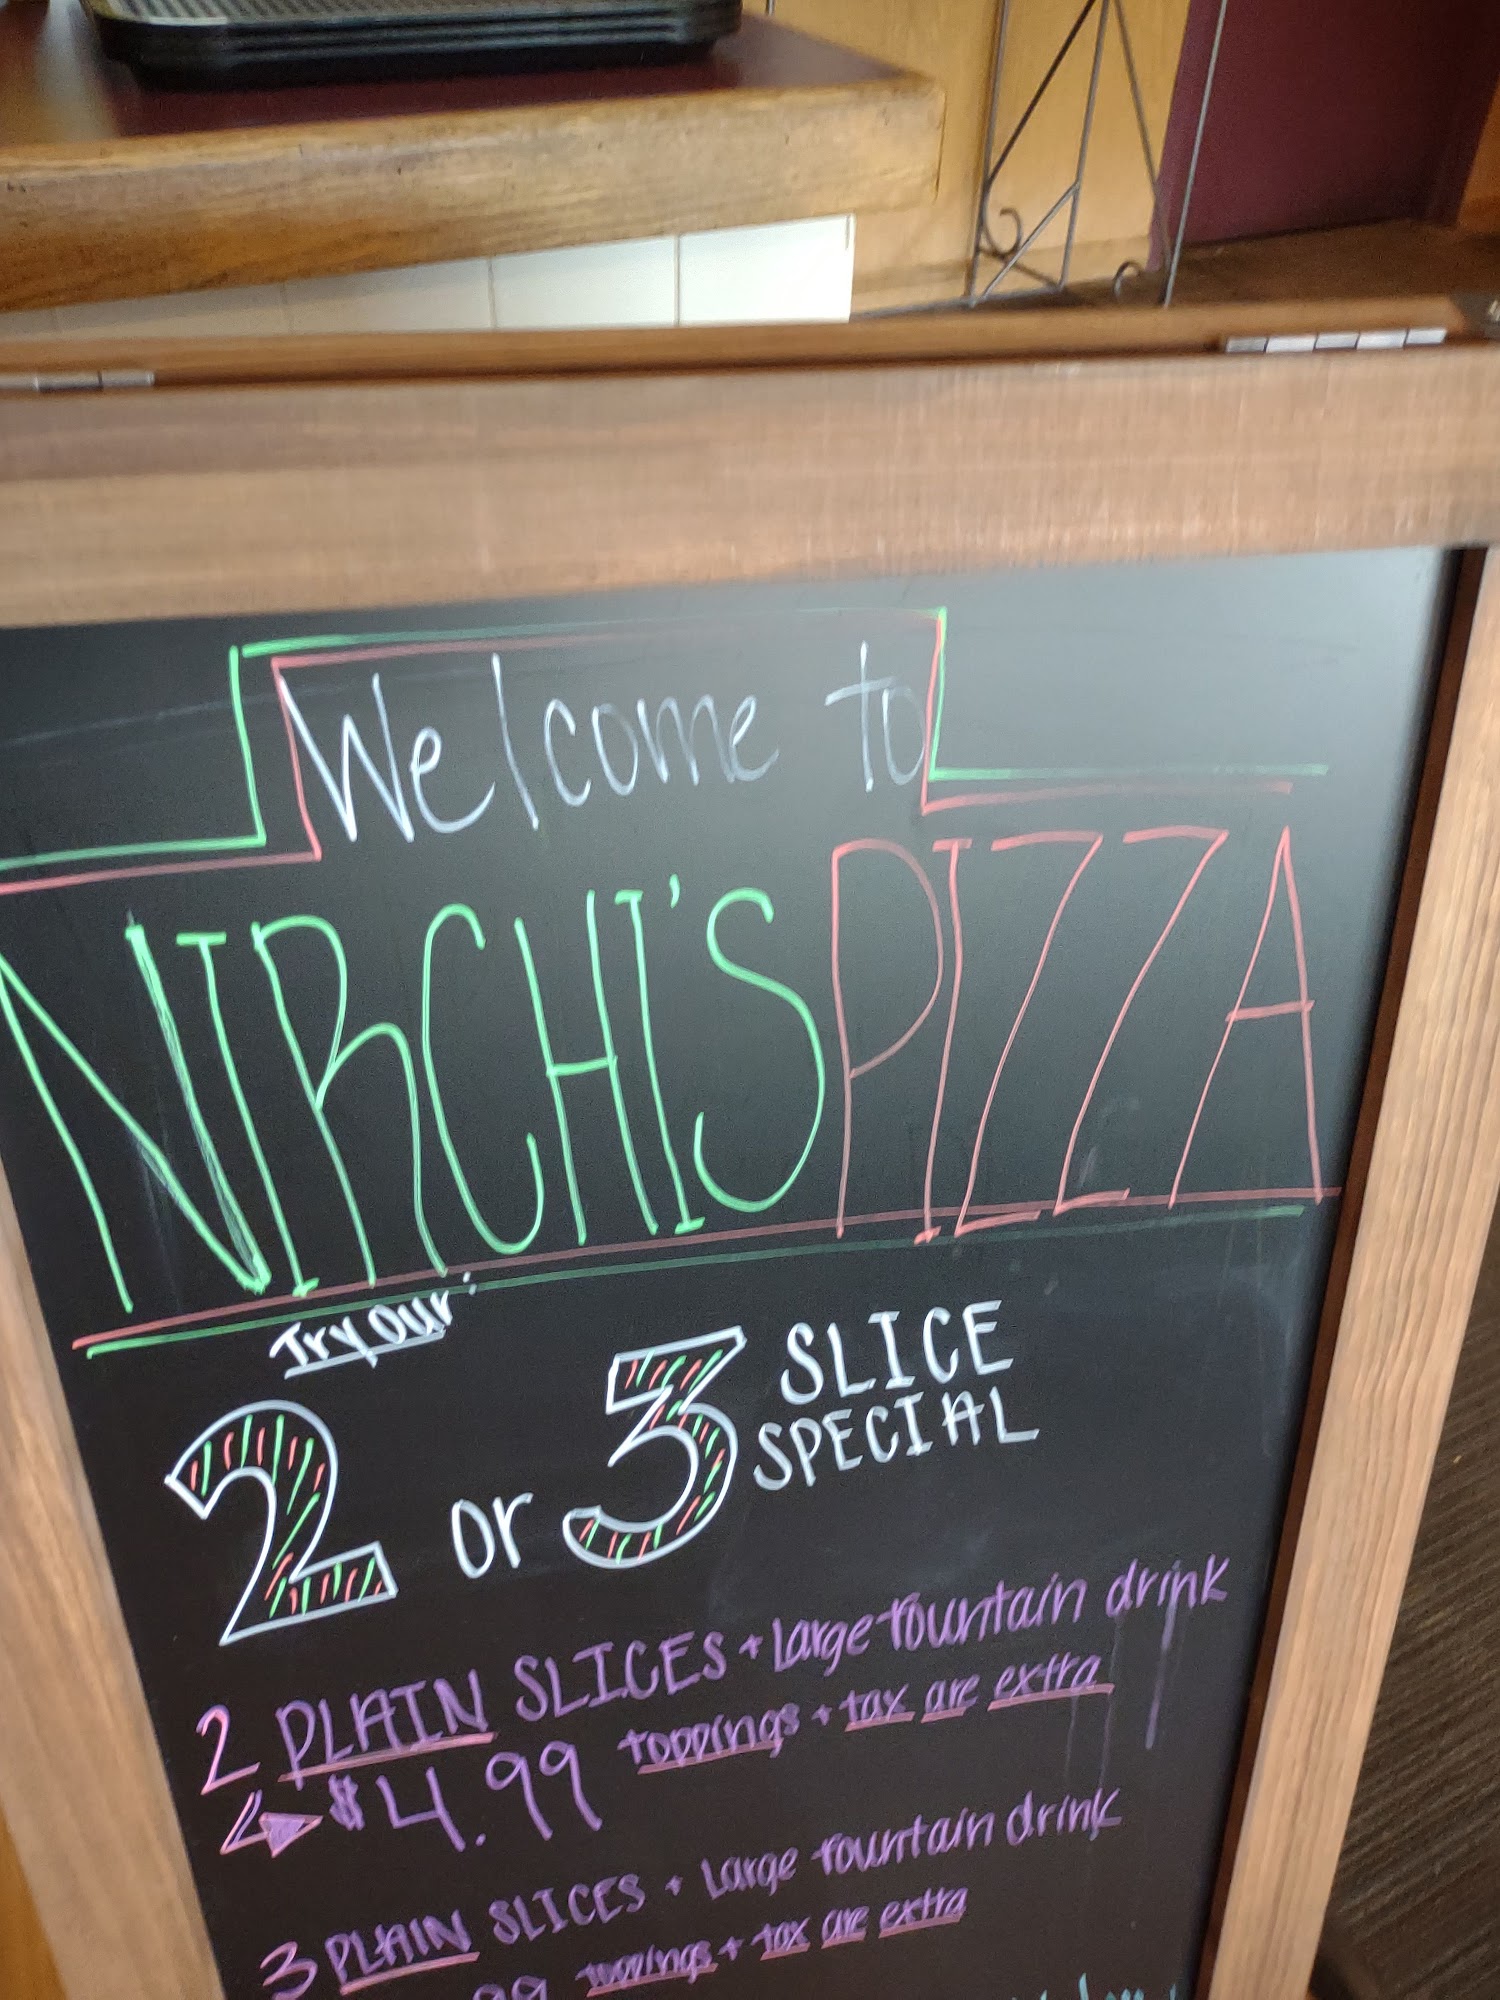 Welcome to
NIRCHI'S PIZZA
Try our:
2 or 3 SLICE
SPECIAL
2 PLAIN SLICES + Large fountain drink
$4.99 toppings + tax are extra
3 PLAIN SLICES + Large fountain drink
99 toppings + tax are extra